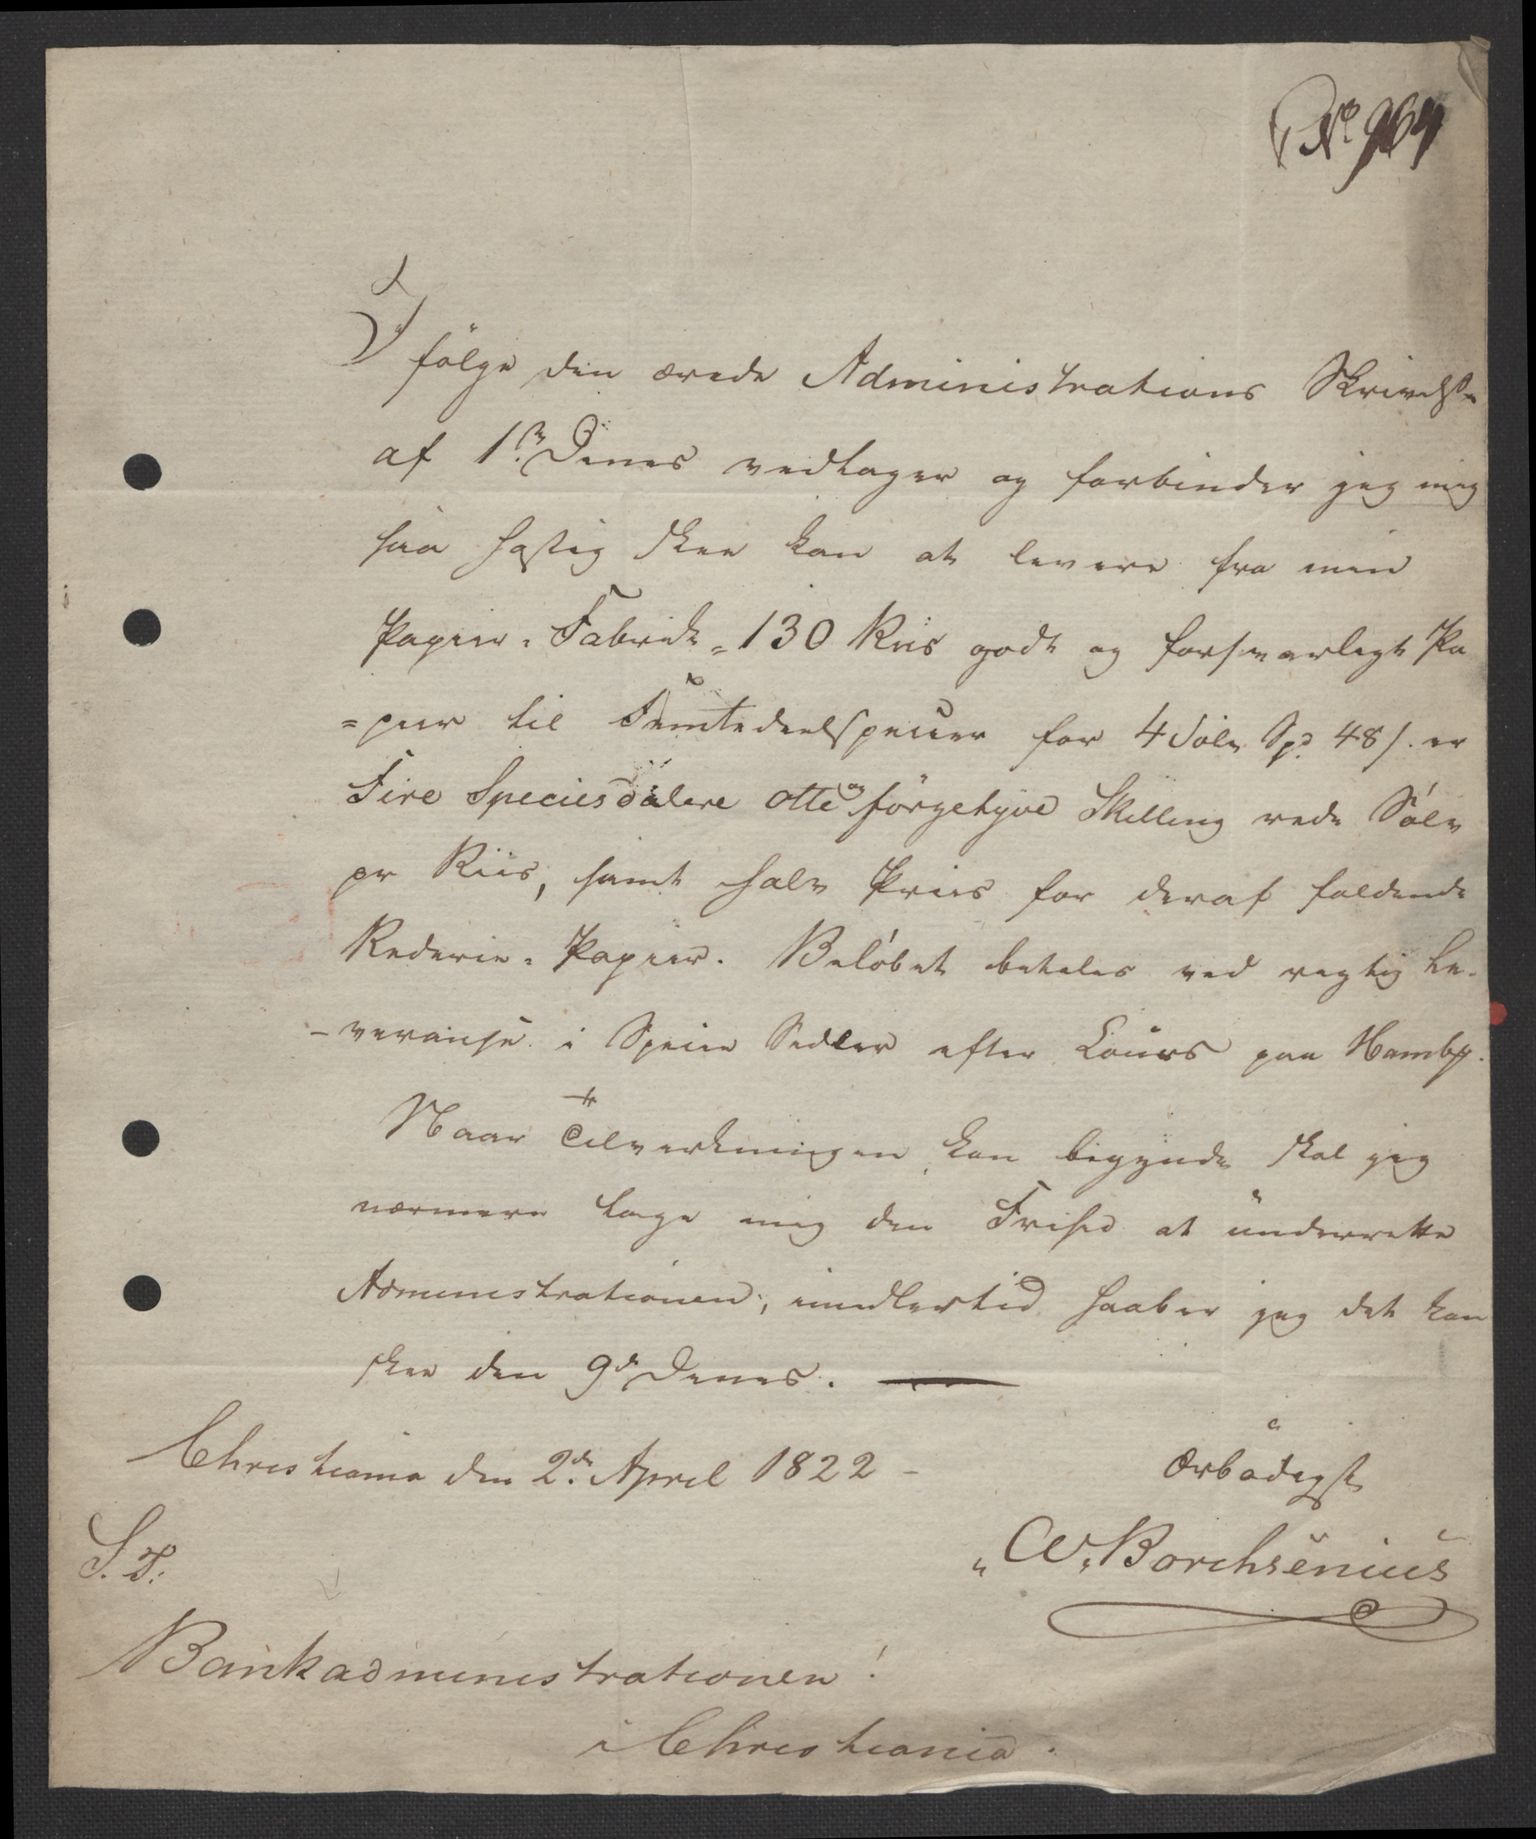 No 964
I fölge den ærede Administrations Skrivelse
af 1ste Denes vedtager og forbinder jeg mig
saa hastig skee kan at levere fra min
Papier-Fabrik 130 Riis godt og forsvarligt Pa
=piir til Femtedeelspecier for 4 Sölv Spd 48 s. er
Fire Speciesdalere otte og förgetyve Skilling rede Sölv
pr Riis, samt halv Priis for deraf faldende
Rederie-Papiir. Belöbet betales ved rigtig Le-
-verance i Specie Sedler efter Cours paa Hambg.
Naar Tilverkningen kan begynde skal jeg
nærmere tage mig den Frihed at underrette
Administrationen; imidlertid haaber jeg det kan
skee den 9de Denes.
Christiania den 2den April 1822 -
Ærbødigst
S. T.
W. Borchsenius
Bankadministrationen!
i Christiania.